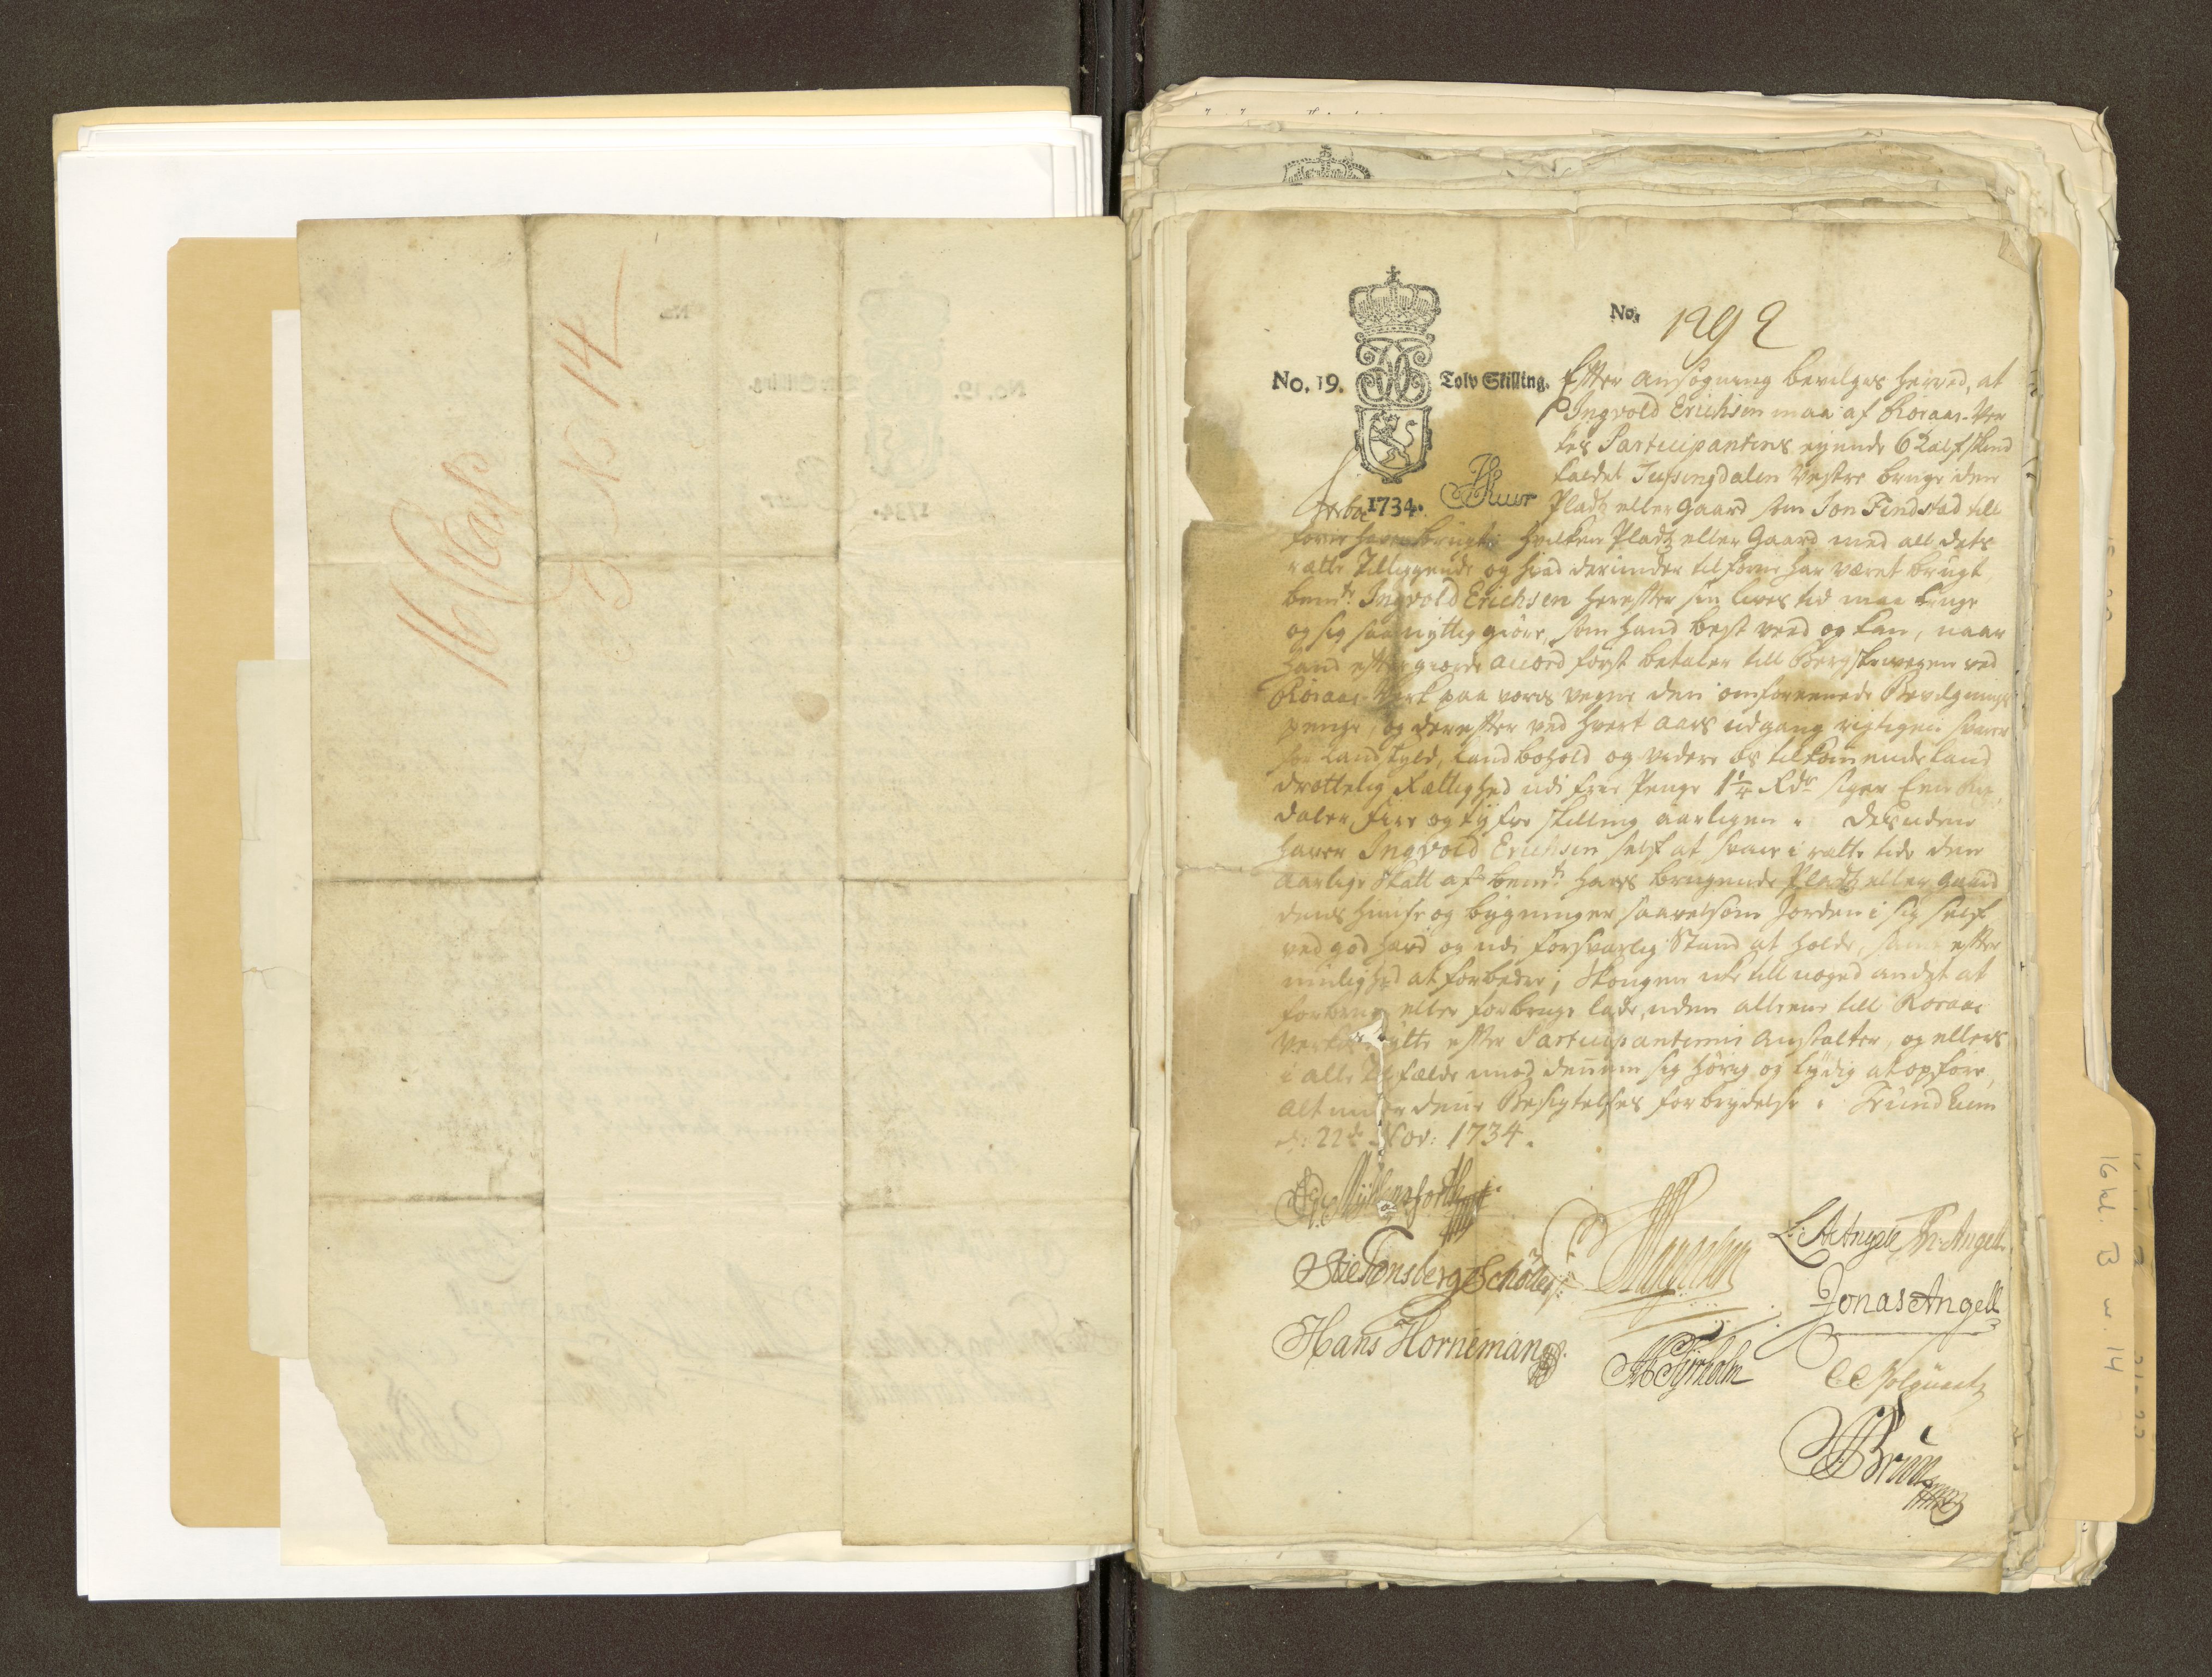 16 Klass
B No 14
No. 1292
No. 19.
Tolv Skilling.
1734.
Efter Ansøgning bevilges herved, at
Ingvold Erichsen maa af Röraas-Wer
kes Participanters eyende 6 Kalfskind
kaldet Tufsingdalen Vestre bruge den
Pladtz eller Gaard som Jon Findstad till
forn haver brugt: hvilken Pladtz eller Gaard med all dets
rætte Tilliggende og hvad derunder tilforne har været brugt
bemte Ingvold Erichsen herefter sin lives tid maa bruge
og sig saa nyttig giøre, som hand best veed og kan, naar
hand efter giorde Accord först betaler till Bergskriveren ved
Röraas-Verk paa vores vegne den omforeenede Bevilgnings
penge, og derefter ved hvert Aars udgang rigtigen svarer
for Landskyld, Landbohold og videre os tilkommende Land
drottelig Rettighed udi frie Penge 1¼ Rdr siger Een Rix
daler, fire og tyfve skilling aarligen. Desuden
haver Ingvold Erichsen self at svare i rette tide den
aarlige Skatt af bemte hans brugende Pladtz eller Gaard
dends Huuse og bygninger saavelsom Jorden i sig self
ved god hævd og udi forsvarlig Stand at holde, samt efter
muelighed at forbedre; Skougen icke till noged andet at
forbruge eller forbruge lade, uden alleene till Röraas
Verkes Nytte efter Participanternis Anstalter, og ellers
i alle Tilfælde imod dennem sig hörig og lydig at opföre,
alt under denne Besigtelses forbrydelse. Trundhiem
d: 22de Nov: 1734.
L: A Angell Th: Angell
Stie Tonsberg Schöller
Jonas Angell
Hans Horneman
C C Solquartz
Brun
16 kl. B nr 14